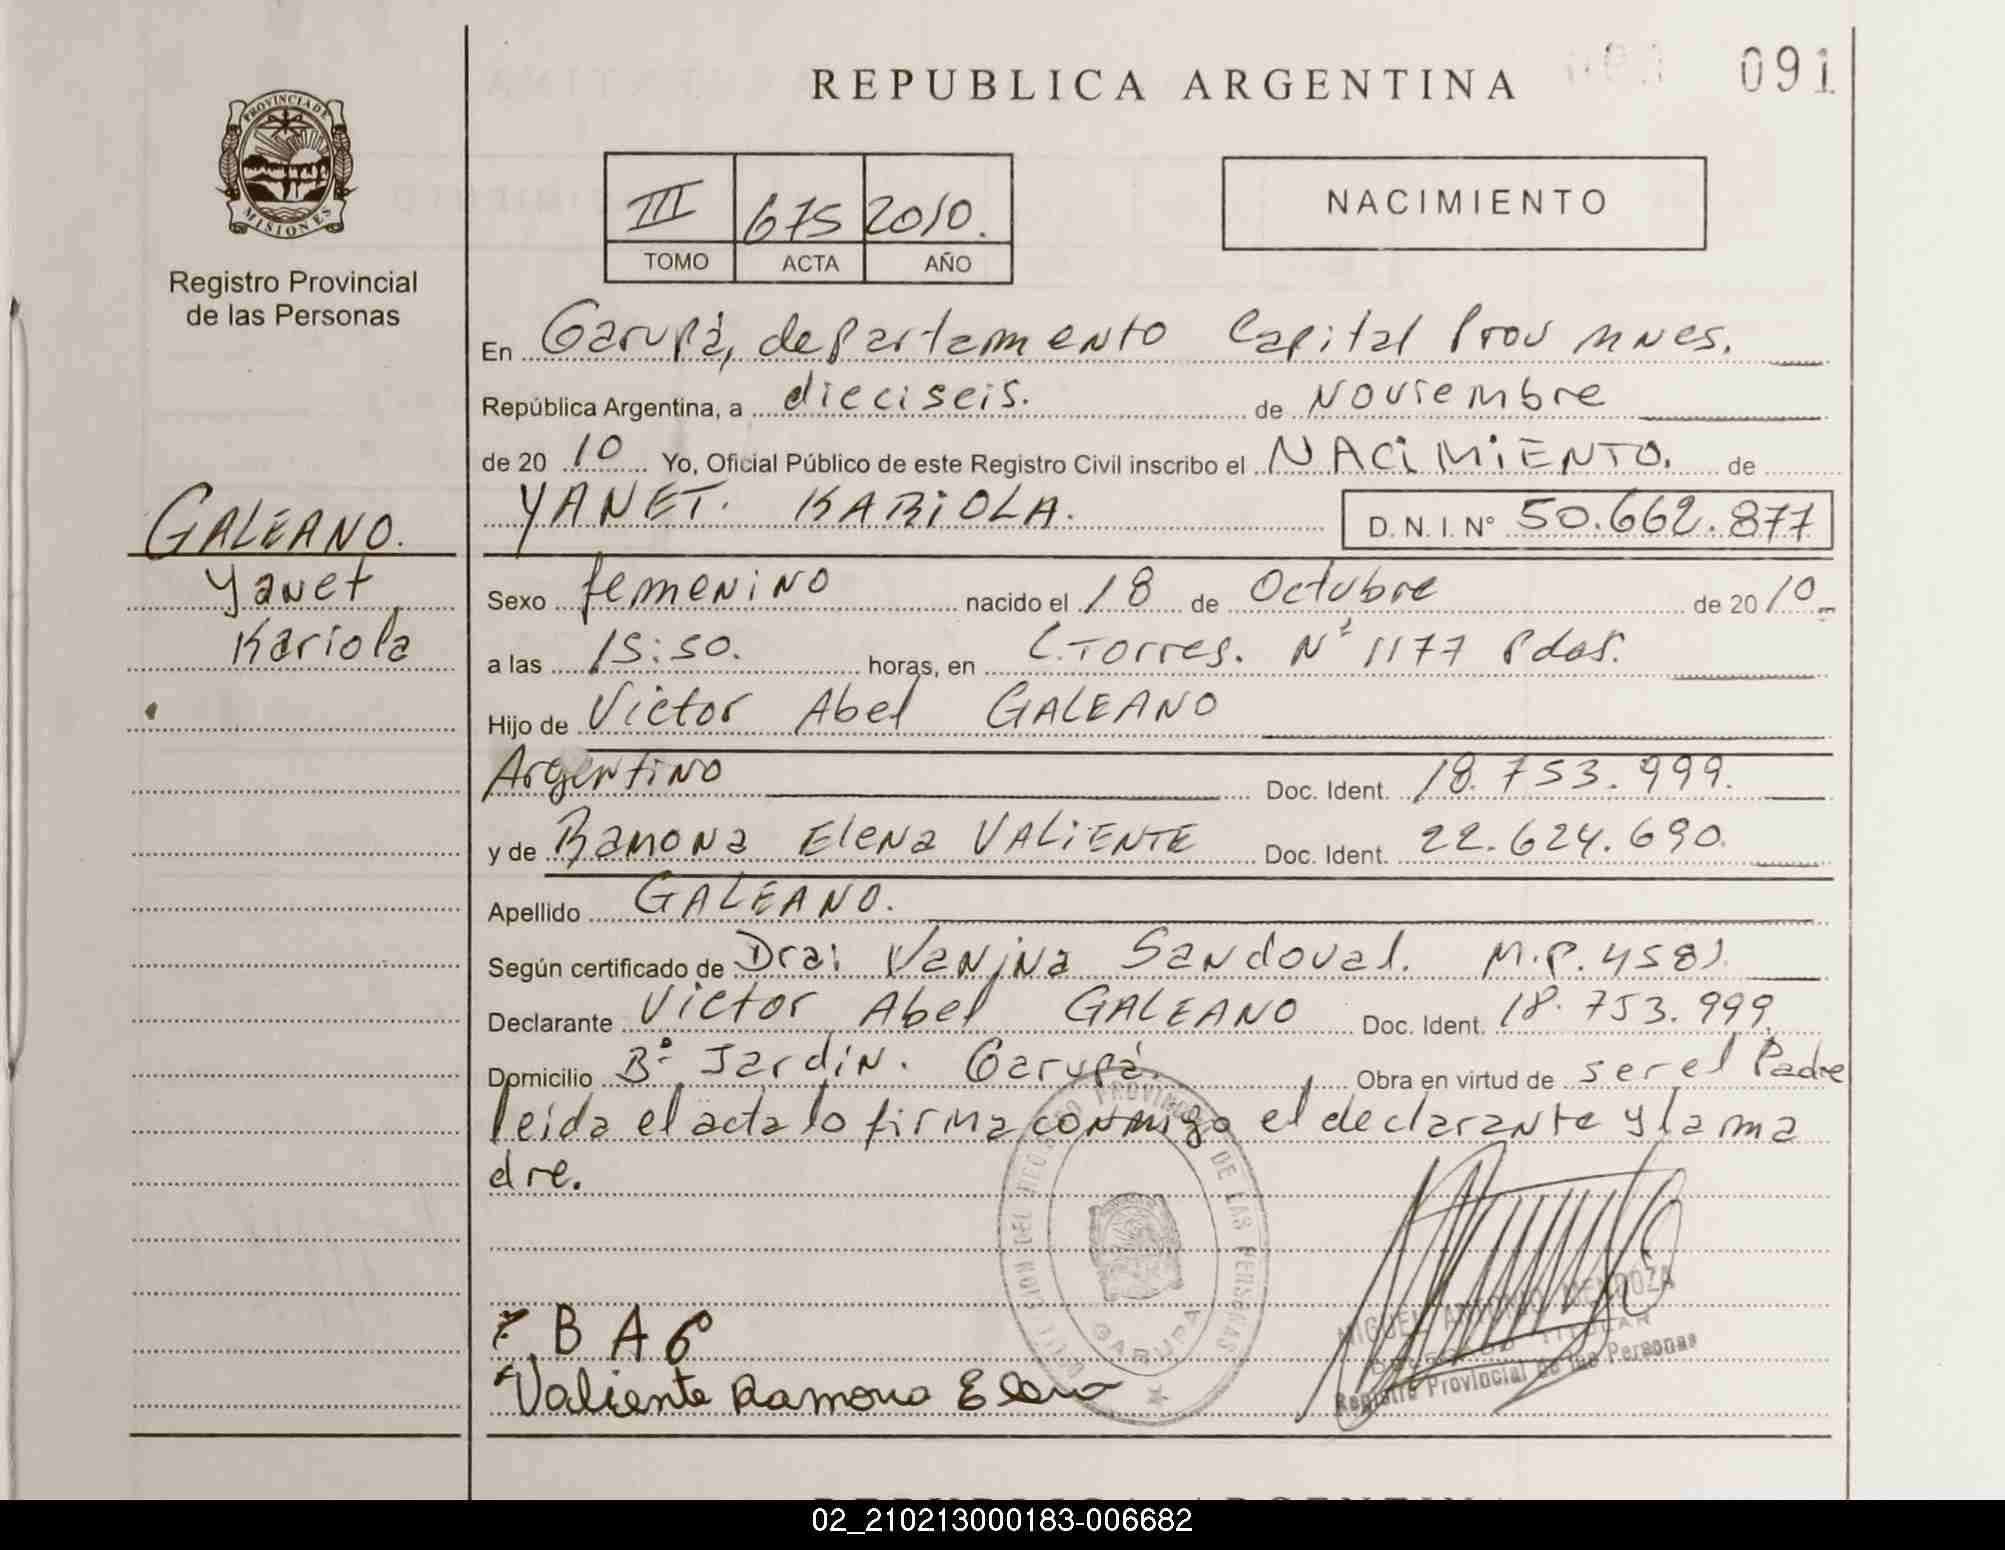 REPUBLICA ARGENTINA
091
PROVINCIA DE MISIONES
Registro Provincial
de las Personas
III 675 2010.
TOMO ACTA AÑO
NACIMIENTO
En Garupá, departamento Capital Prov Mnes.
República Argentina, a dieciseis. de Noviembre
de 20 10 Yo, Oficial Público de este Registro Civil inscribo el NACIMIENTO. de
YANET. KARIOLA. D. N. I. N° 50.662.877
GALEANO.
Yanet
Kariola
Sexo femenino nacido el 18 de Octubre de 20 10
a las 15:50. horas, en C. Torres. N° 1177 Pdas.
Hijo de Victor Abel GALEANO
Argentino Doc. Ident. 18.753.999.
y de Ramona Elena VALIENTE Doc. Ident. 22.624.690.
Apellido GALEANO.
Según certificado de Dra: Vanina Sandoval. M.P. 4581
Declarante Victor Abel GALEANO Doc. Ident. 18.753.999
Domicilio B° Jardin. Garupá. Obra en virtud de ser el Padre
leida el acta lo firma conmigo el declarante y la ma
dre.
DEL REGISTRO PROVINCIAL DE LAS PERSONAS
GARUPA
MIGUEL ANTONIO MENDOZA
TITULAR
Registro Provincial de las Personas
B A G
Valiente Ramona Elena
REPUBLICA ARGENTINA
02_210213000183-006682